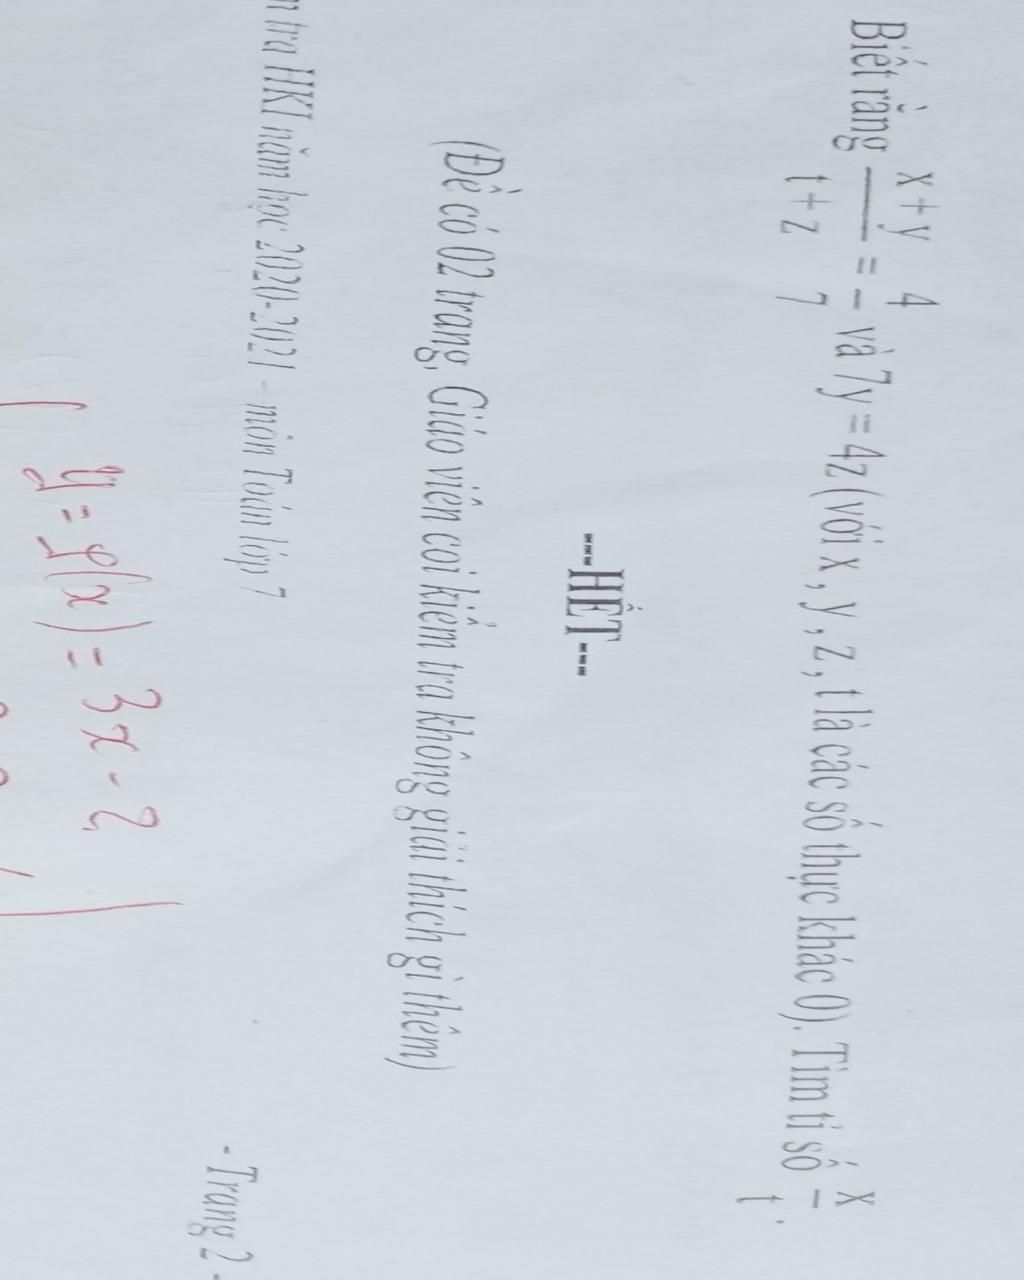 Biết rằng x + y / t + z = 4 / 7 và 7y = 4z (với x , y , z , t là các số thực khác 0). Tìm tỉ số x / t .
---HẾT---
(Đề có 02 trang, Giáo viên coi kiểm tra không giải thích gì thêm)
tra HKI năm học 2020-2021 - môn Toán lớp 7
- Trang 2 -
y = f(x) = 3x - 2